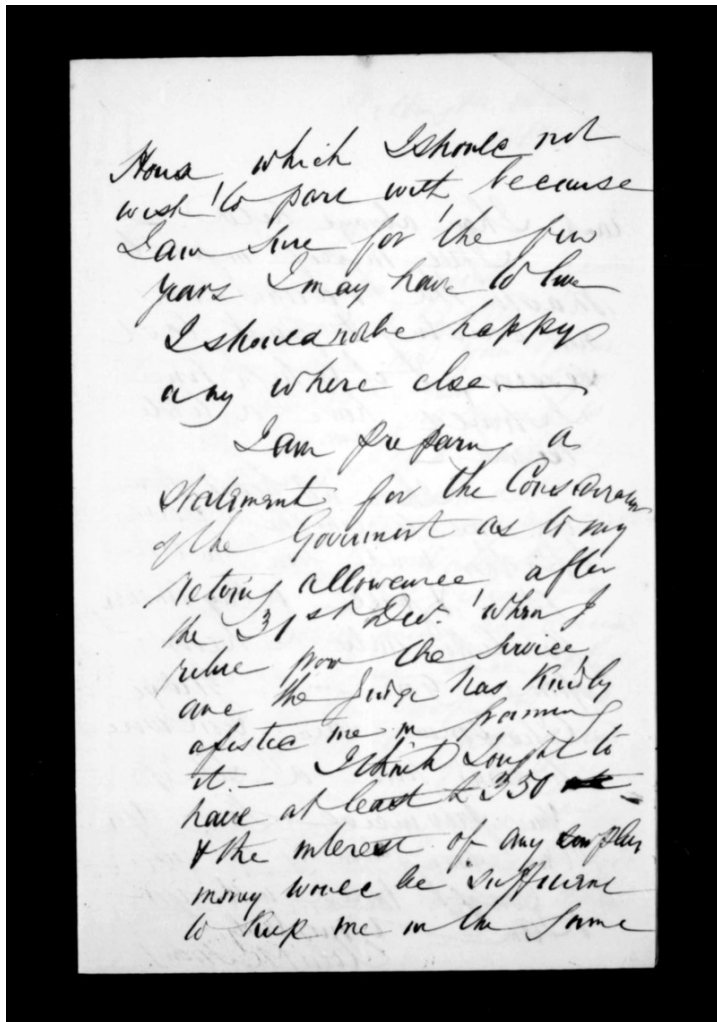 House, which I should not
wish to part with, because
I am sure for the few
years I may have to live
I should not be happy
any where else. —
I am preparing a
statement for the Consideration
of the Government as to my
retiring allowance after
the 31st Dec. when I
retire from the Service,
and the Judge has kindly
assisted me in framing
it. — I think I ought to
have at least £ 350
& the interest of any surplus
money would be sufficient
to keep me in the same